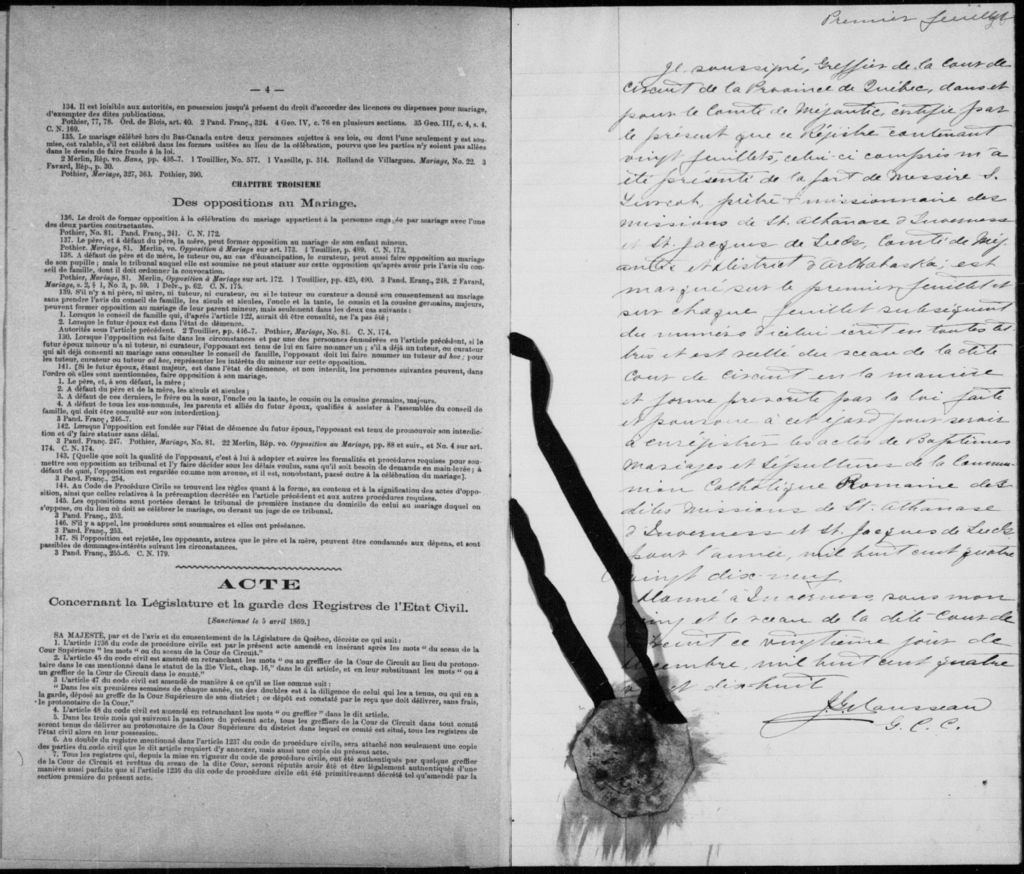 — 4 —
134. Il est loisible aux autorités, en possession jusqu'à présent du droit d'accorder des licences ou dispenses pour mariage,
d'exempter des dites publications.
Pothier, 77, 78. Ord. de Blois, art. 40. 2 Pand. Franç., 324. 4 Geo. IV, c. 76 en plusieurs sections. 35 Geo. III, c. 4, s. 4.
C. N. 169.
135. Le mariage célébré hors du Bas-Canada entre deux personnes sujettes à ses lois, ou dont l'une seulement y est sou-
mise, est valable, s'il est célébré dans les formes usitées au lieu de la célébration, pourvu que les parties n'y soient pas allées
dans le dessin de faire fraude à la loi.
2 Merlin, Rép. vo. Bans, pp. 435-7. 1 Touillier, No. 577. 1 Vazeille, p. 314. Rolland de Villargues. Mariage, No. 22. 3
Favard, Rép., p. 30.
Pothier, Mariage, 327, 363. Pothier, 390.
CHAPITRE TROISIEME
Des oppositions au Mariage.
136. Le droit de former opposition à la célébration du mariage appartient à la personne engagée par mariage avec l'une
des deux parties contractantes.
Pothier, No. 81. Pand. Franç., 241. C. N. 172.
137. Le père, et à défaut du père, la mère, peut former opposition au mariage de son enfant mineur.
Pothier. Mariage, 81. Merlin, vo. Opposition à Mariage sur art. 173. 4 Touillier, p. 489. C. N. 173.
138. A défaut de père et de mère, le tuteur ou, au cas d'émancipation, le curateur, peut aussi faire opposition au mariage
de son pupille; mais le tribunal auquel elle est soumise ne peut statuer sur cette opposition qu'après avoir pris l'avis du con-
seil de famille, dont il doit ordonner la convocation.
Pothier, Mariage, 81. Merlin, Opposition à Mariage sur art. 172. 1 Touillier, pp. 425, 490. 3 Pand. Franç., 248. 2 Favard,
Mariage, s. 2, § 1, No. 3, p. 59. 1 Delv., p. 62. C. N. 175.
139. S'il n'y a ni père, ni mère, ni tuteur, ni curateur, ou si le tuteur ou curateur a donné son consentement au mariage
sans prendre l'avis du conseil de famille, les aïeuls et aïeules, l'oncle et la tante, le cousin et la cousine germains, majeurs,
peuvent former opposition au mariage de leur parent mineur, mais seulement dans les deux cas suivants :
1. Lorsque le conseil de famille qui, d'après l'article 122, aurait dû être consulté, ne l'a pas été ;
2. Lorsque le futur époux est dans l'état de démence.
Autorités sous l'article précédent. 2 Touillier, pp. 446-7. Pothier, Mariage, No. 81. C. N. 174.
130. Lorsque l'opposition est faite dans les circonstances et par une des personnes énumérées en l'article précédent, si le
futur époux mineur n'a ni tuteur, ni curateur, l'opposant est tenu de lui en faire nommer un ; s'il a déjà un tuteur, ou curateur
qui ait déjà consenti au mariage sans consulter le conseil de famille, l'opposant doit lui faire nommer un tuteur ad hoc ; pour
les tuteur, curateur ou tuteur ad hoc, représenter les intérêts du mineur sur cette opposition.
141. [Si le futur époux, étant majeur, est dans l'état de démence, et non interdit, les personnes suivantes peuvent, dans
l'ordre où elles sont mentionnées, faire opposition à son mariage.
1. Le père, et, à son défaut, la mère ;
2. A défaut du père et de la mère, les aïeuls et aïeules ;
3. A défaut de ces derniers, le frère ou la sœur, l'oncle ou la tante, le cousin ou la cousine germains, majeurs.
4. A défaut de tous les sus-nommés, les parents et alliés du futur époux, qualifiés à assister à l'assemblée du conseil de
famille, qui doit être consulté sur son interdiction].
3 Pand. Franç., 246-7.
142. Lorsque l'opposition est fondée sur l'état de démence du futur époux, l'opposant est tenu de promouvoir son interdic-
tion et d'y faire statuer sans délai.
3 Pand. Franç. 247. Pothier, Mariage, No. 81. 22 Merlin, Rép. vo. Opposition au Mariage, pp. 88 et suiv., et No. 4 sur art.
174. C. N. 174.
143. [Quelque que soit la qualité de l'opposant, c'est à lui à adopter et suivre les formalités et procédures requises pour sou-
mettre son opposition au tribunal et l'y faire décider sous les délais voulus, sans qu'il soit besoin de demande en main-levée ; à
défaut de quoi, l'opposition est regardée comme non avenue, et il est, nonobstant, passé outre à la célébration du mariage].
3 Pand. Franç., 254.
144. Au Code de Procédure Civile se trouvent les règles quant à la forme, au contenu et à la signification des actes d'oppo-
sition, ainsi que celles relatives à la préremption décrétée en l'article précédent et aux autres procédures requises.
145. Les oppositions sont portées devant le tribunal de première instance du domicile de celui au mariage duquel on
s'oppose, ou du lieu où doit se célébrer le mariage, ou devant un juge de ce tribunal.
2 Pand. Franç., 253.
146. S'il y a appel, les procédures sont sommaires et elles ont préséance.
3 Pand. Franç., 253.
147. Si l'opposition est rejetée, les opposants, autres que le père et la mère, peuvent être condamnés aux dépens, et sont
passibles de dommages-intérêts suivant les circonstances.
3 Pand. Franç., 255-6. C. N. 179.
ACTE
Concernant la Législature et la garde des Registres de l'Etat Civil.
[Sanctionné le 5 avril 1869.]
SA MAJESTÉ, par et de l'avis et du consentement de la Législature de Québec, décrète ce qui suit :
1. L'article 1236 du code de procédure civile est par le présent acte amendé en insérant après les mots " du sceau de la
Cour Supérieure " les mots " ou du sceau de la Cour de Circuit."
2. L'article 45 du code civil est amendé en retranchant les mots " ou au greffier de la Cour de Circuit au lieu du protono-
taire dans le cas mentionné dans le statut de la 25e Vict., chap. 16," dans le dit article, et en leur substituant les mots " ou à
un greffier de la Cour de Circuit dans le comté."
3 L'article 47 du code civil est amendé de manière à ce qu'il se lise comme suit :
" Dans les six premières semaines de chaque année, un des doubles est à la diligence de celui qui les a tenus, ou qui en a
la garde, déposé au greffe de la Cour Supérieure de son district ; ce dépôt est constaté par le reçu que doit délivrer, sans frais,
le protonotaire de la Cour."
4. L'article 48 du code civil est amendé en retranchant les mots " ou greffier " dans le dit article.
5. Dans les trois mois qui suivront la passation du présent acte, tous les greffiers de la Cour de Circuit dans tout comté
seront tenus de délivrer au protonotaire de la Cour Supérieure du district dans lequel ce comté est situé, tous les registres de
l'état civil alors en leur possession.
6. Au double du registre mentionné dans l'article 1237 du code de procédure civile, sera attaché non seulement une copie
des parties du code civil que le dit article requiert d'y annexer, mais aussi une copie du présent acte.
7. Tous les registres qui, depuis la mise en vigueur du code de procédure civile, ont été authentiqués par quelque greffier
de la Cour de Circuit et revêtus du sceau de la dite Cour, seront réputés avoir été et être légalement authentiqués d'une
manière aussi parfaite que si l'article 1236 du dit code de procédure civile eût été primitivement décrété tel qu'amendé par la
section première du présent acte.
Premier feuillet
Je soussigné, Greffier de la Cour de
Circuit de la Province de Québec, dans et
pour le Comté de Mégantic, certifie par
le présent que ce Régistre contenant
vingt feuillets, celui-ci compris m'a
été présenté de la part de Messire S.
prêtre & missionnaire des
missions de St. Athanase d'Inverness
et St. Jacques de Leeds, Comté de Még
antic et district d'Arthabaska; est
marqué sur le premier feuillet et
sur chaque feuillet subséquent
du numéro d'icelui écrit en toutes let
tres et est scellé du sceau de la dite
Cour de Circuit en la manière
et forme prescrite par la loi faite
et pourvue à cet égard pour servir
à enregistrer les actes de Baptêmes
Mariages et Sépultures de la Commu
nion Catholique Romaine des
dites Missions de St. Athanase
d'Inverness et St. Jacques de Leeds
pour l'année, mil huit cent quatre
vingt dix-neuf.
Donné à Inverness, sous mon
seing et le sceau de la dite Cour de
Circuit ce vingtième jour de
mil huit cent quatre
vingt dix-huit
Cousseau
G. C. C.